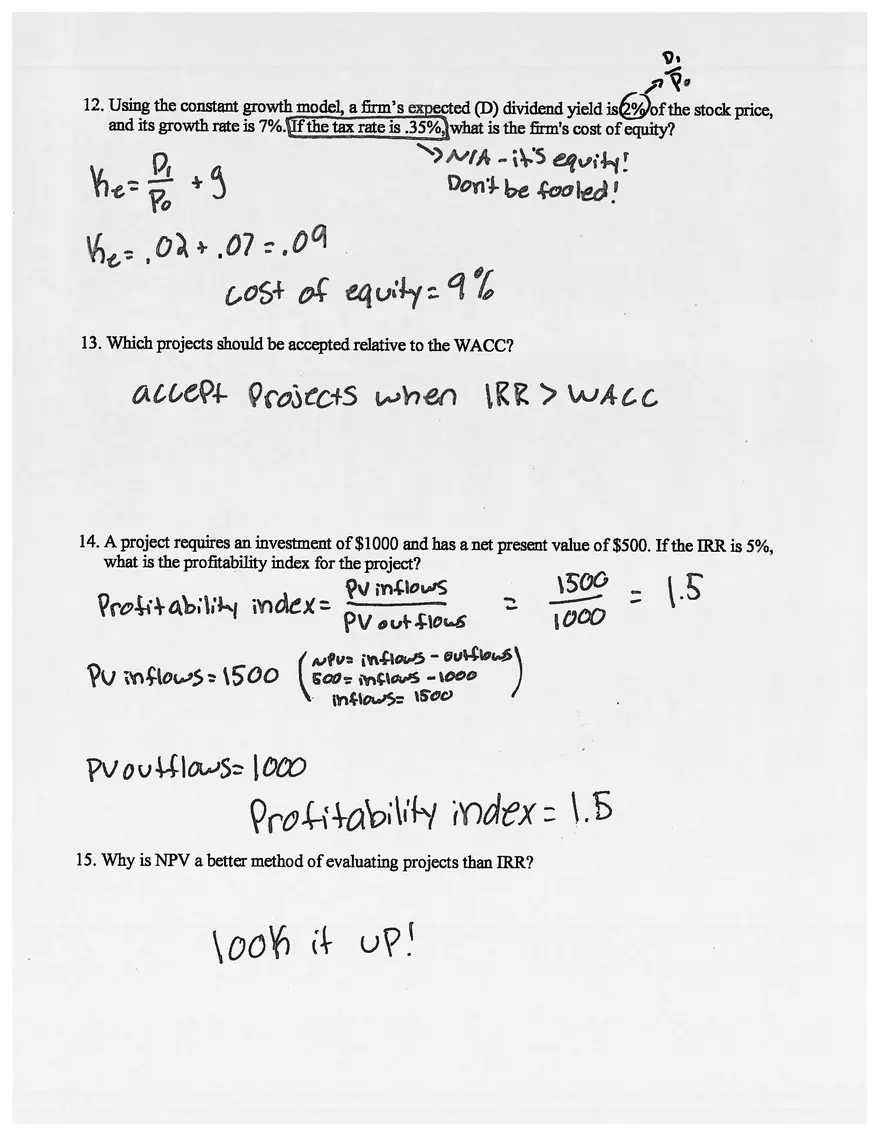 D₁
P₀
12. Using the constant growth model, a firm's expected (D) dividend yield is 2% of the stock price,
and its growth rate is 7%. If the tax rate is .35%, what is the firm's cost of equity?
N/A - it's equity!
Don't be fooled!
Ke = D₁/P₀ + g
Ke = .02 + .07 = .09
cost of equity = 9%
13. Which projects should be accepted relative to the WACC?
accept projects when IRR > WACC
14. A project requires an investment of $1000 and has a net present value of $500. If the IRR is 5%,
what is the profitability index for the project?
Profitability index = PV inflows / PV outflows = 1500 / 1000 = 1.5
PV inflows = 1500 (NPV = inflows - outflows
500 = inflows - 1000
inflows = 1500)
PV outflows = 1000
Profitability index = 1.5
15. Why is NPV a better method of evaluating projects than IRR?
look it up!